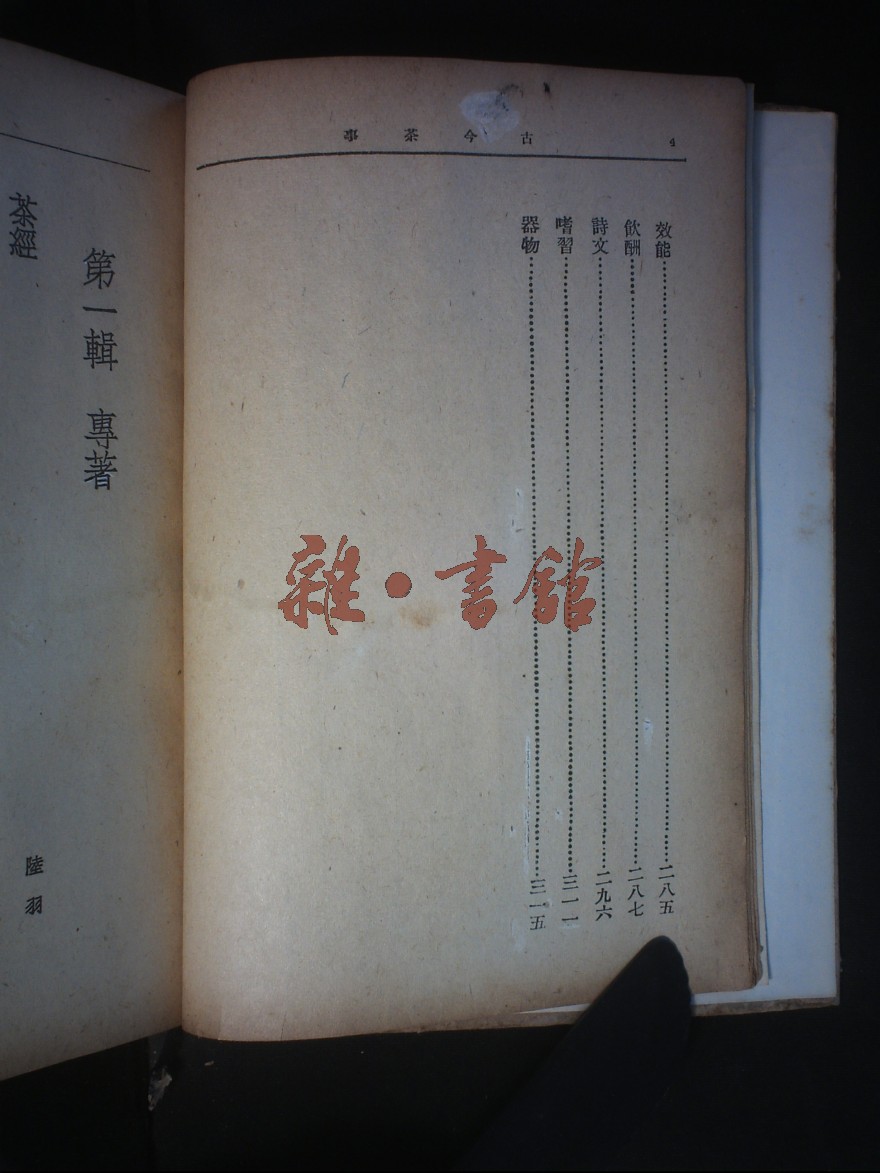 古今茶事 4
效能……二八五
飲酬……二八七
詩文……二九六
嗜習……三一一
器物……三一五
雜·書館
第一輯 專著
茶經 陸羽